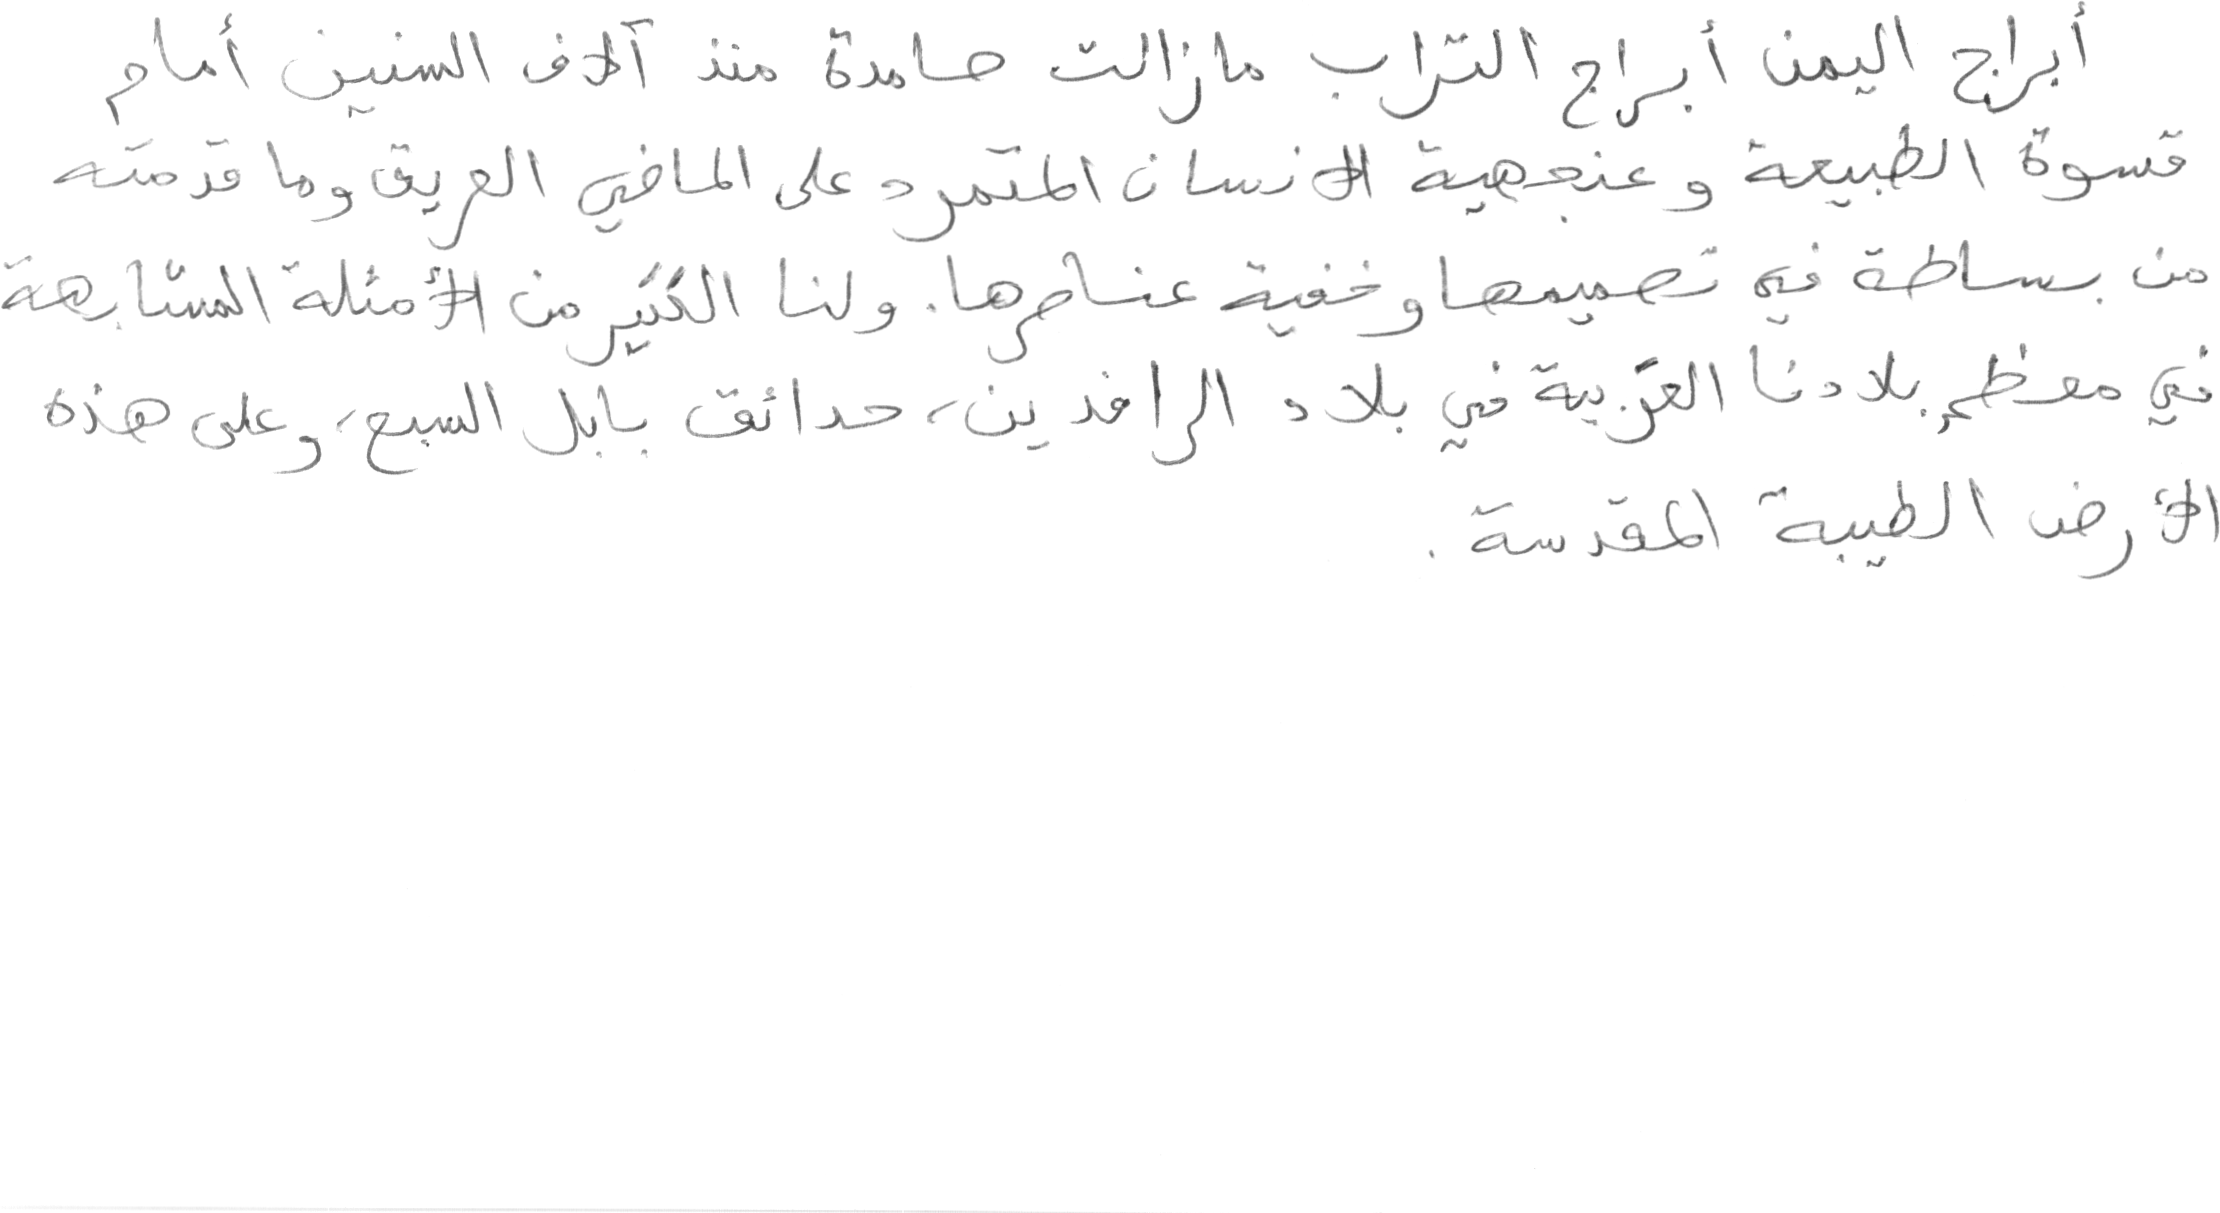 أبراج اليمن أبراج التراب مازالت صامدة منذ آلاف السنين أمام
قسوة الطبيعة وعنجهية الانسان المتمرد على الماضي العريق وما قدمته
من بساطة في تصميمها وخفية عناصرها. ولنا الكثير من الأمثلة المشابهة
في معظم بلادنا العربية في بلاد الرافدين، حدائق بابل السبع، وعلى هذه
الأرض الطيبة المقدسة.